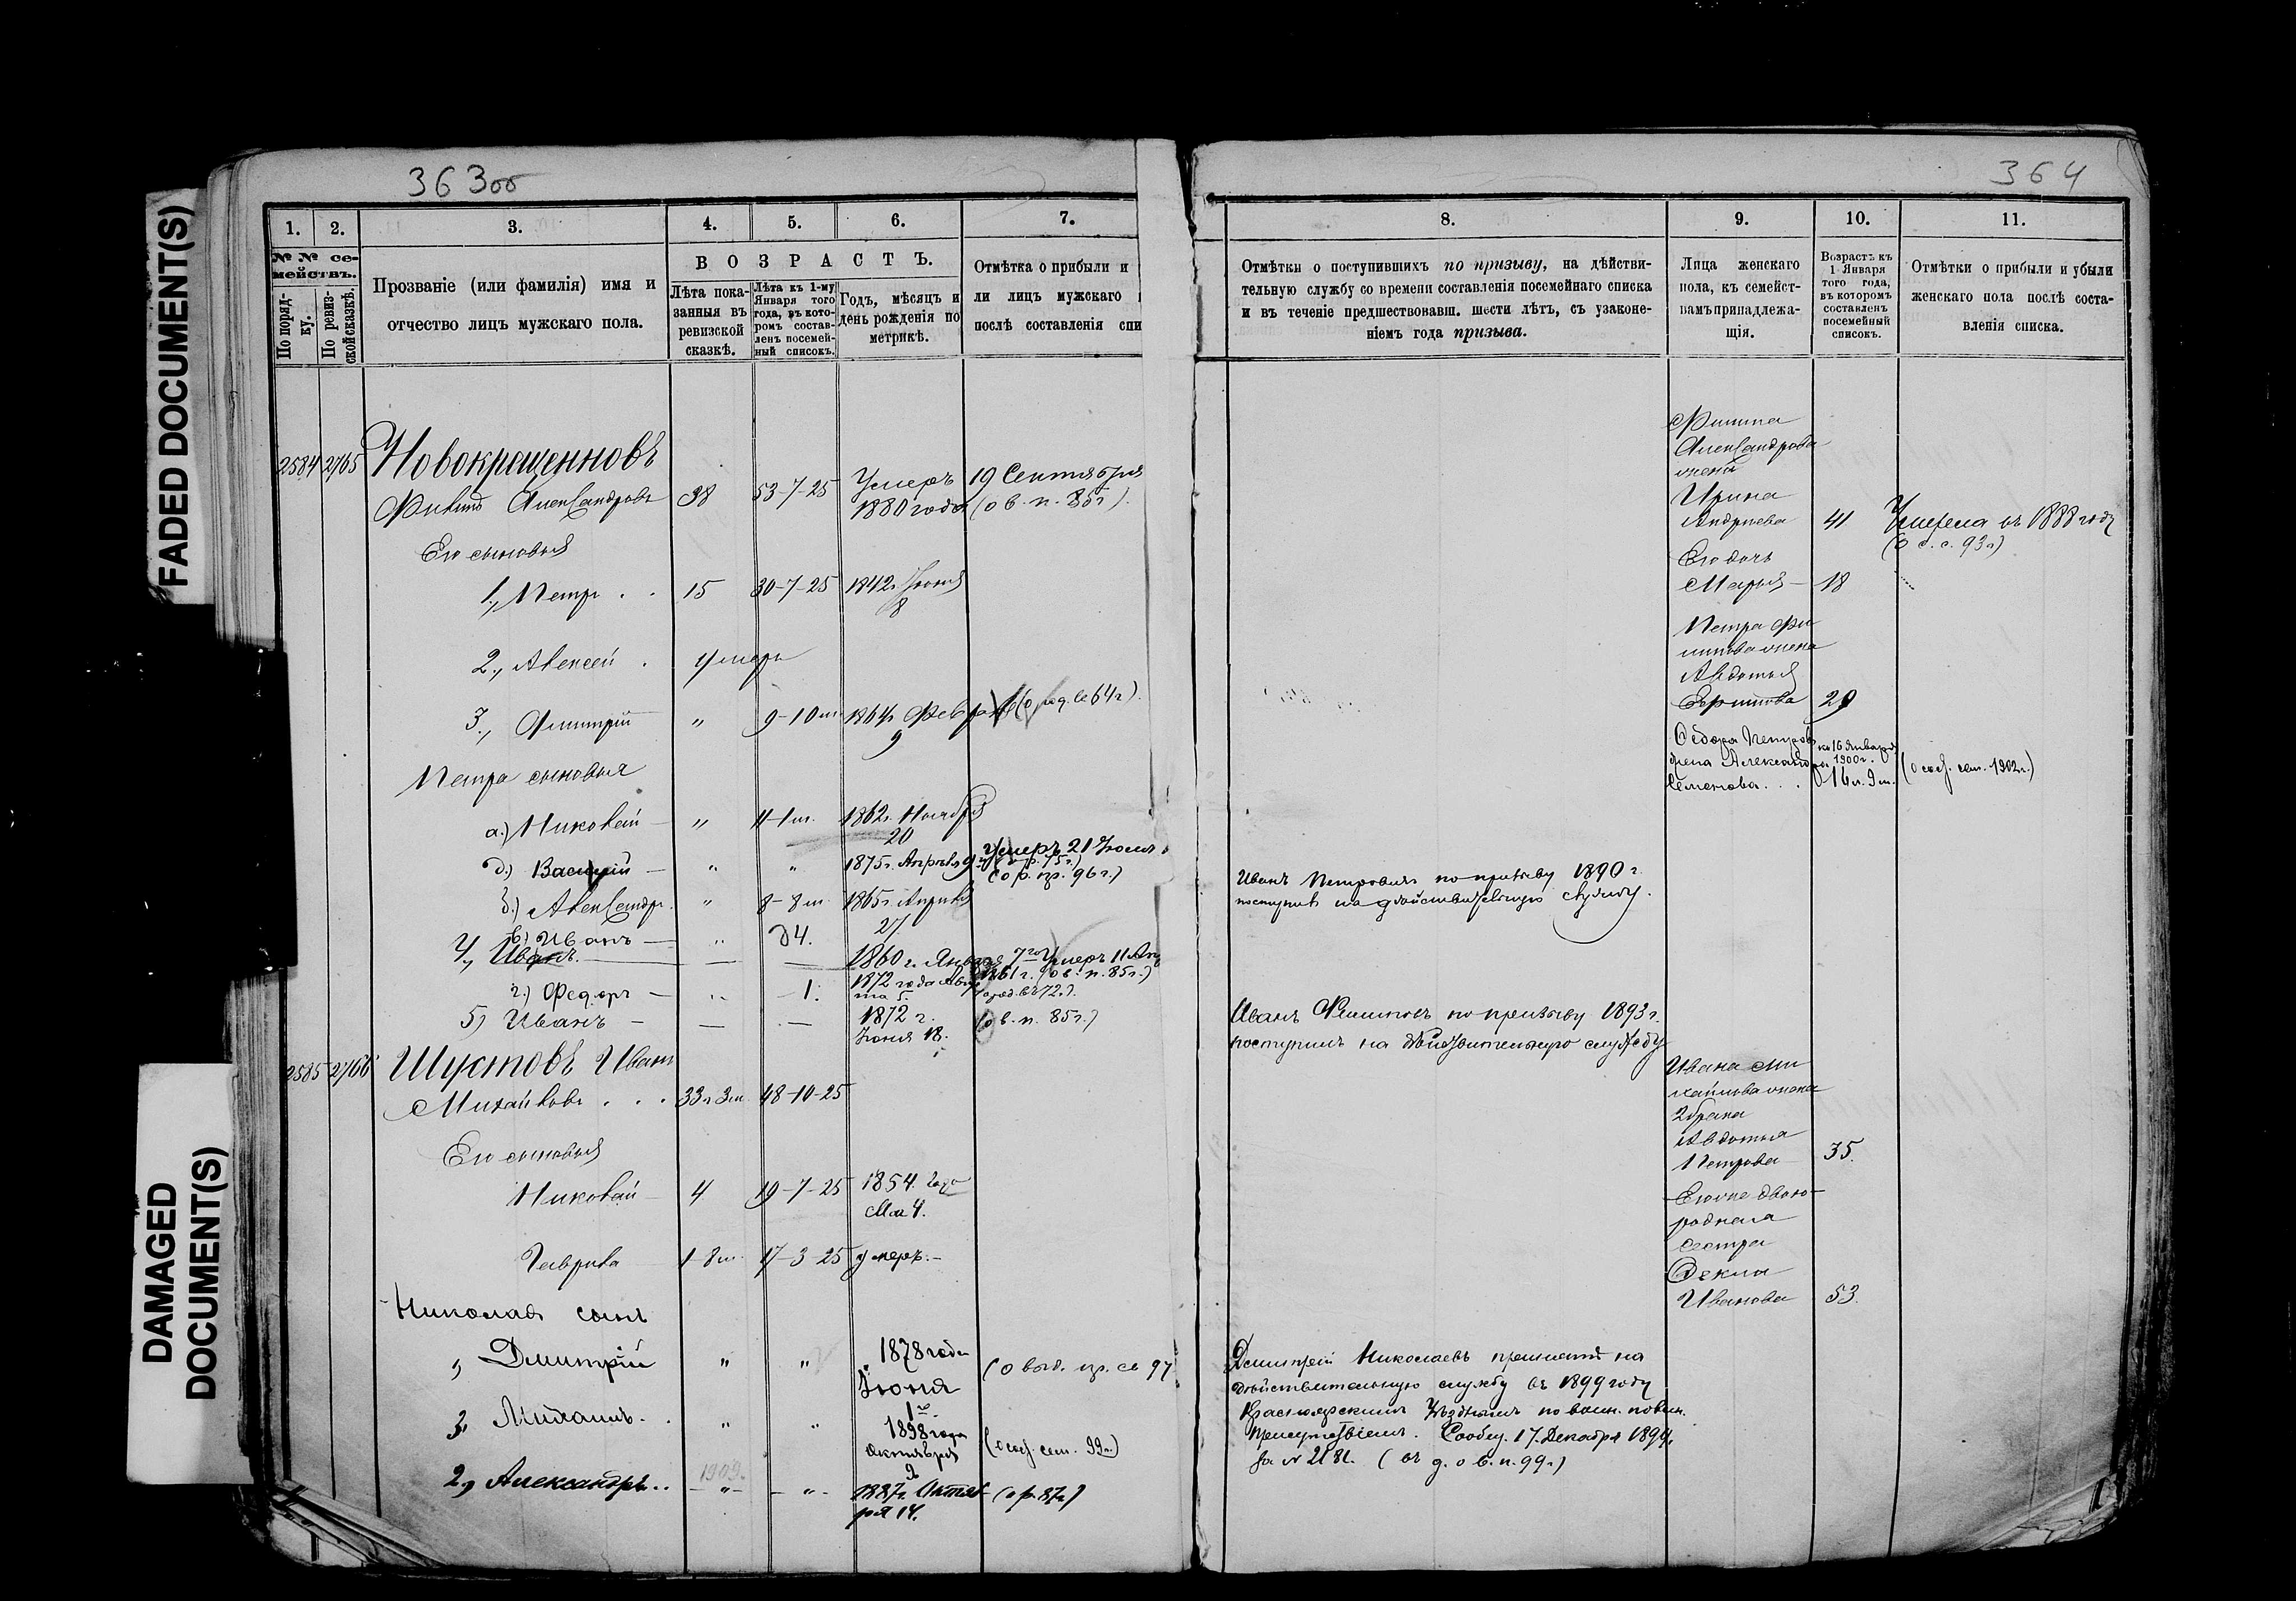 363об
364
FADED DOCUMENT(S)
DAMAGED
DOCUMENT(S)
1.
2.
3.
4.
5.
6.
7.
№ № се-
мействъ.
По поряд-
ку.
По ревиз-
ской сказкѣ.
Прозваніе (или фамилія) имя и
отчество лицъ мужскаго пола.
ВОЗРАСТЪ.
Лѣта пока-
занныя въ
ревизской
сказкѣ.
Лѣта къ 1-му
Января того
года, въ кото-
ромъ состав-
ленъ посемей-
ный списокъ.
Годъ, мѣсяцъ и
день рожденія по
метрикѣ.
Отмѣтка о прибыли и
ли лицъ мужскаго
послѣ составленія спи
2584 2765 Новокрещенновъ
Филипъ Александровъ 38 53-7-25 Умеръ 19 Сентября
1880 года (о в. п. 85 г.).
Его сыновья
1., Петръ . . 15 30-7-25 1842 г. Іюня
8
2., Алексей . умеръ
3., Дмитрій " 9-10 м. 1864 г. Февраля 64 г.).
9
Петра сыновья
а.) Николай — " 11-1 м. 1862 г. Ноября
20
Умеръ 21 Іюля
д.) Василій — " " 1875 г. Апрѣля 9 75 г.)
(о р. пр. 96 г.)
б.) Александръ " 8-8 м. 1865 г. Апрѣля
27.
в) Иванъ — " 4.
4., Иванъ. — — — 1860 г. Января 7го Умеръ 11 Апр
1861 г. (о в. п. 85 г.)
г.) Федоръ — " 1. 1872 года Авгу
ста 5. 72 г.
5) Иванъ — — — 1872 г. (о в. п. 85 г.)
Іюня 18.
2585 2766 Шустовъ Иванъ
Михайловъ . . . 33 г. 3 м. 48-10-25
Его сыновья
Николай — 4 19-7-25 1854 года
Мая 4.
Гаврила 1-8 м. 17-3-25 умеръ.—
Николая сынъ
1, Дмитрій " " 1878 года
Іюня (о пр. св. 97
1го
3, Михаилъ. . " " 1898 года
Октября (о сем. 99 г.)
2
1909.
2., Александръ.. — " — — " — 1887 г. Октяб- (о р. 87 г.)
ря 14.
8.
9.
10.
11.
Отмѣтки о поступившихъ по призыву, на дѣйстви-
тельную службу со времени составленія посемейнаго списка
и въ теченіе предшествовавш. шести лѣтъ, съ узаконе-
ніемъ года призыва.
Лица женскаго
пола, къ семейст-
вамъ принадлежа-
щія.
Возрастъ къ
1 Января
того года,
въ которомъ
составленъ
посемейный
списокъ.
Отмѣтки о прибыли и убыли
женскаго пола послѣ соста-
вленія списка.
Филипа
Александрова
жена
Ирина
Андреева 41 Умерла въ 1888 году
(о с. с. 93 г.)
Его дочь
Марья — 18
Петра Фи
липова жена
Авдотья
29
Ѳедора Петрова къ 16 Января
жена Александра 1900 г.
Семенова . . 16 л. 9 м. (о сем. 1902 г.)
Иванъ Петровичъ по призыву 1890 г.
поступилъ на дѣйствительную службу.
Иванъ Филиповъ по призыву 1893 г.
поступилъ на дѣйствительную службу
Ивана Ми
хайлова жена
2 брака
Авдотья
Петрова 35.
Его же двою-
родная
сестра
Ѳекла
Иванова 53.
Дмитрій Николаевъ принятъ на
дѣйствительную службу въ 1899 году
Красноярскимъ Уѣзднымъ по воин. повин.
присутствіемъ. Сообщ. 17 Декабря 1899 г.
за № 2181. (въ д. о в. п. 99 г.)